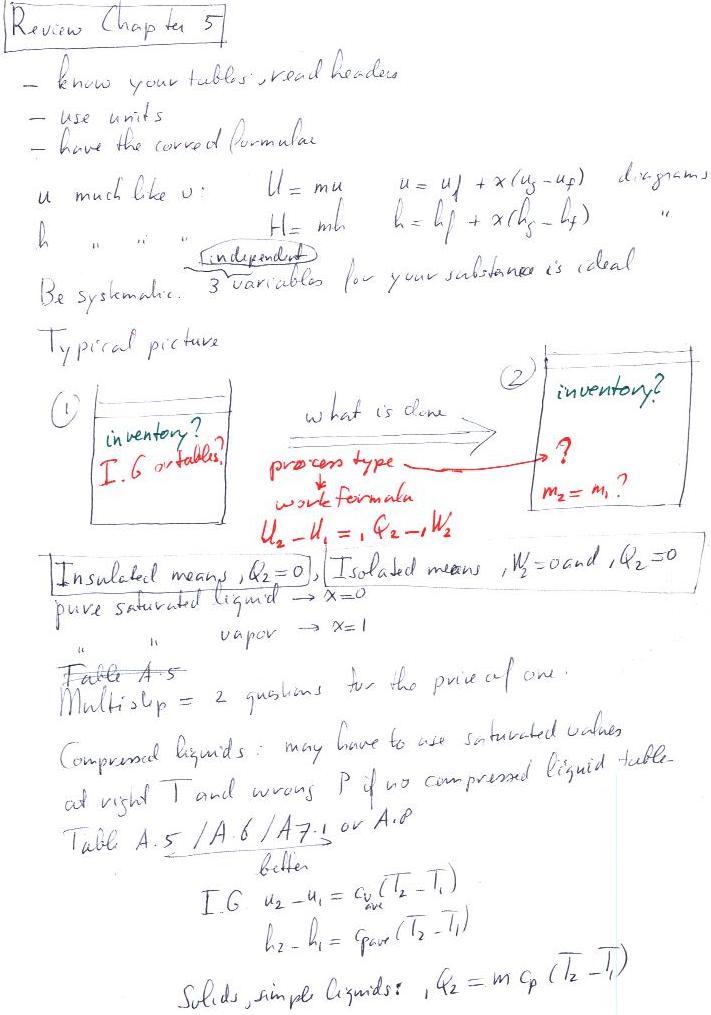 Review Chapter 5
- know your tables, read headers
- use units
- have the correct formulae
u much like v: U = mu u = uf + x(ug - uf) diagrams
h " " " H = mh h = hf + x(hg - hf) "
independent
Be systematic. 3 variables for your substance is ideal
Typical picture
① what is done ②
inventory? inventory?
I.G or tables? process type ?
work formula m2 = m1?
U2 - U1 = 1Q2 - 1W2
Insulated means 1Q2 = 0, Isolated means 1W2 = 0 and 1Q2 = 0
pure saturated liquid → x=0
" " vapor → x=1
Table A.5
Multistep = 2 questions for the price of one.
Compressed liquids: may have to use saturated values
at right T and wrong P if no compressed liquid table
Table A.5 / A.6 / A7.1 or A.8
better
I.G. u2 - u1 = cv ave (T2 - T1)
h2 - h1 = cp ave (T2 - T1)
Solids, simple liquids: 1Q2 = m cp (T2 - T1)